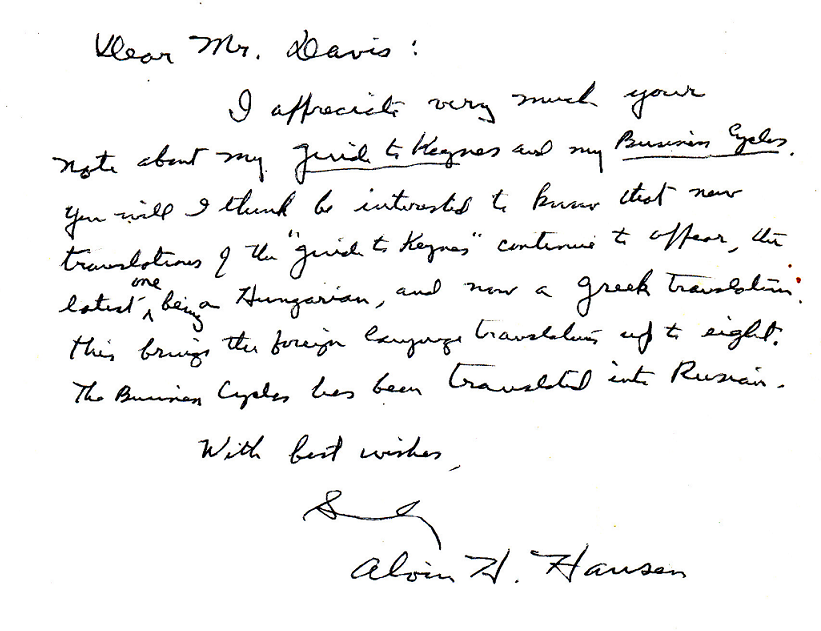 Dear Mr. Davis:
I appreciate very much your
note about my Guide to Keynes and my Business Cycles.
You will I think be interested to know that new
translations of the "Guide to Keynes" continue to appear, the
latest one being a Hungarian, and now a Greek translation.
This brings the foreign language translations up to eight.
The Business Cycles has been translated into Russian.
With best wishes,
Sincerely
Alvin H. Hansen